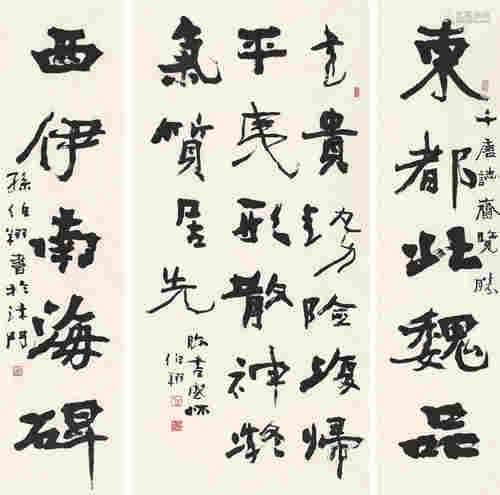 東都北魏品
千唐誌齋覽勝
書貴方險復歸
平夷形散神凝
氣質居先
臨書感怀
伯翔
西伊南海碑
孫伯翔書於津門